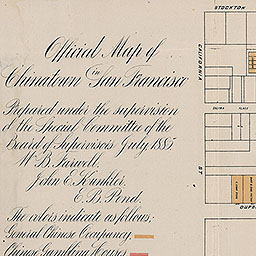 Official Map of
Chinatown in San Francisco
Prepared under the supervision
of the Special Committee of the
Board of Supervisors July 1885
W. B. Farwell.
John E. Kunkler.
E. B. Pond.
The colors indicate as follows:
General Chinese Occupancy.
Chinese Gambling Houses
STOCKTON
CALIFORNIA
ST
PLACE
DUPO